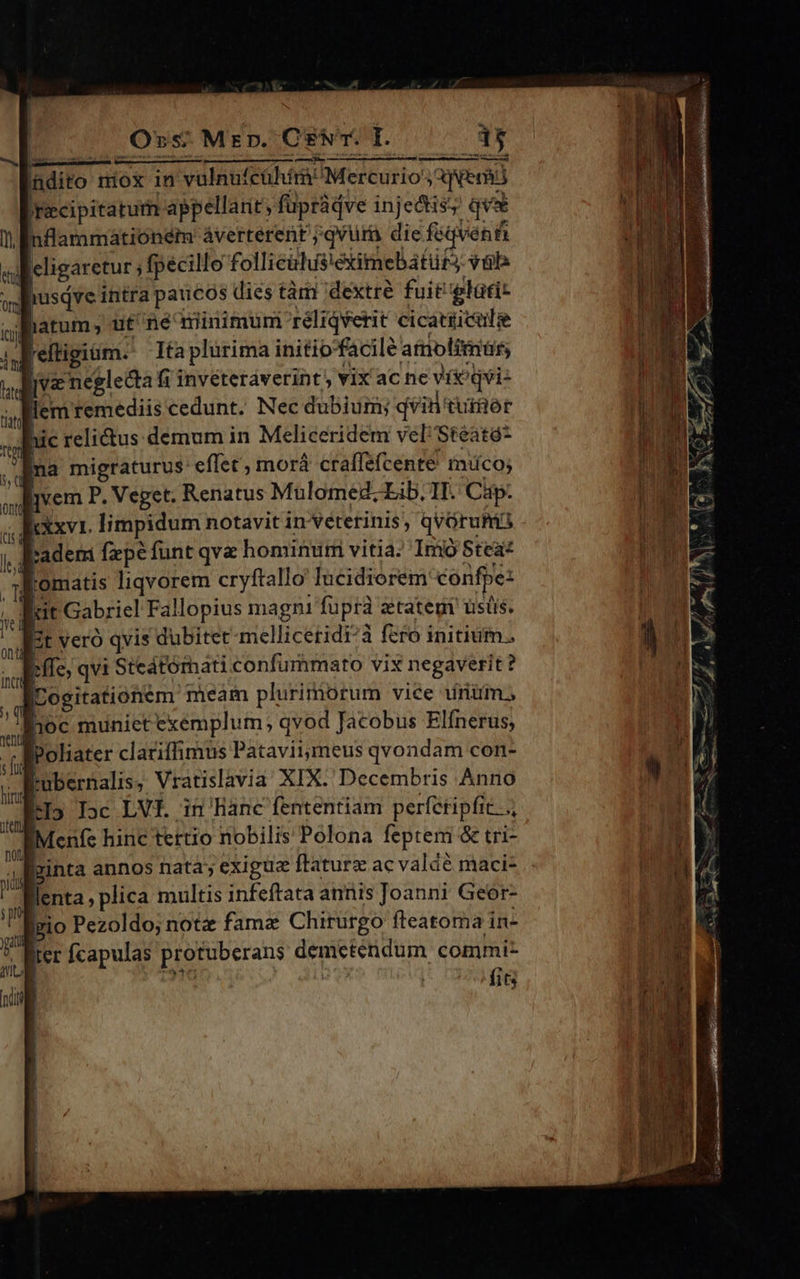 Obs. Med. Cent. I. 15
indito mox in vulnuſculum Mercurio, qvem
præcipitatum appellant, ſupràqve injectis, qvæ
inflammationem averterent, qvùm die ſeqventi
deligaretur, ſpecillo folliculus eximebatur, vul-
nusqve intra paucos dies tàm dextrè fuit gluti-
natum, ut ne minimum reliqverit cicatriculæ
veſtigium. Ita plurima initio facilè amolimur,
qvæ neglecta ſi inveteraverint, vix ac ne vix qvi-
dem remediis cedunt. Nec dubium, qvin tumor
hic relictus demum in Meliceridem vel Steato-
ma migraturus eſſet, morâ craſſeſcente muco,
qvem P. Veget. Renatus Mulomed. Lib. II. Cap.
xxvi. limpidum notavit in veterinis, qvorum
eadem ſæpè ſunt qvæ hominum vitia. Imò Stea-
tomatis liqvorem cryſtallo lucidiorem conſpe-
xit Gabriel Fallopius magni ſuprà ætatem usûs.
Et verò qvis dubitet melliceridi à ſero initium
eſſe, qvi Steatomati conſummato vix negaverit?
Cogitationem meam plurimorum vice unum,
hoc muniet exemplum, qvod Jacobus Elſnerus,
Poliater clariſſimus Patavii, meus qvondam con-
tubernalis, Vratislavia XIX. Decembris Anno
cIɔ Iɔc LVI. in hanc ſententiam perſcripſit.
Menſe hinc tertio nobilis Polona ſeptem & tri-
ginta annos nata, exiguæ ſtaturæ ac valdè maci-
lenta, plica multis infeſtata annis Joanni Geor-
gio Pezoldo, notæ famæ Chirurgo ſteatoma in-
ter ſcapulas protuberans demetendum commi-
ſit,